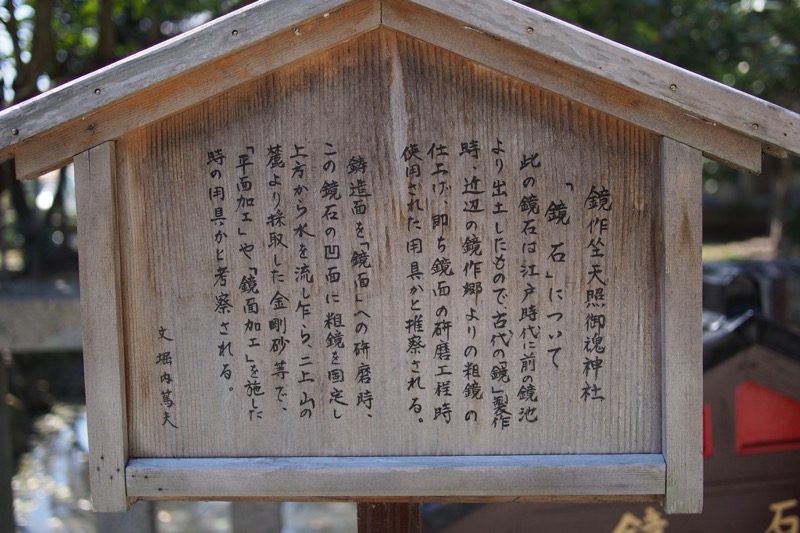 鏡作坐天照御魂神社
「鏡石」について
此の鏡石は江戸時代に前の鏡池
より出土したもので古代の「鏡」製作
時、近辺の鏡作郷よりの粗鏡の
仕上げ、即ち鏡面の研磨工程時
使用された用具かと推察される。
鋳造面を「鏡面」への研磨時、
この鏡石の凹面に粗鏡を固定し
上方から水を流し乍ら、二上山の
麓より採取した金剛砂等で、
「平面加工」や「鏡面加工」を施した
時の用具かと考察される。
文 堀内篤夫
鏡石